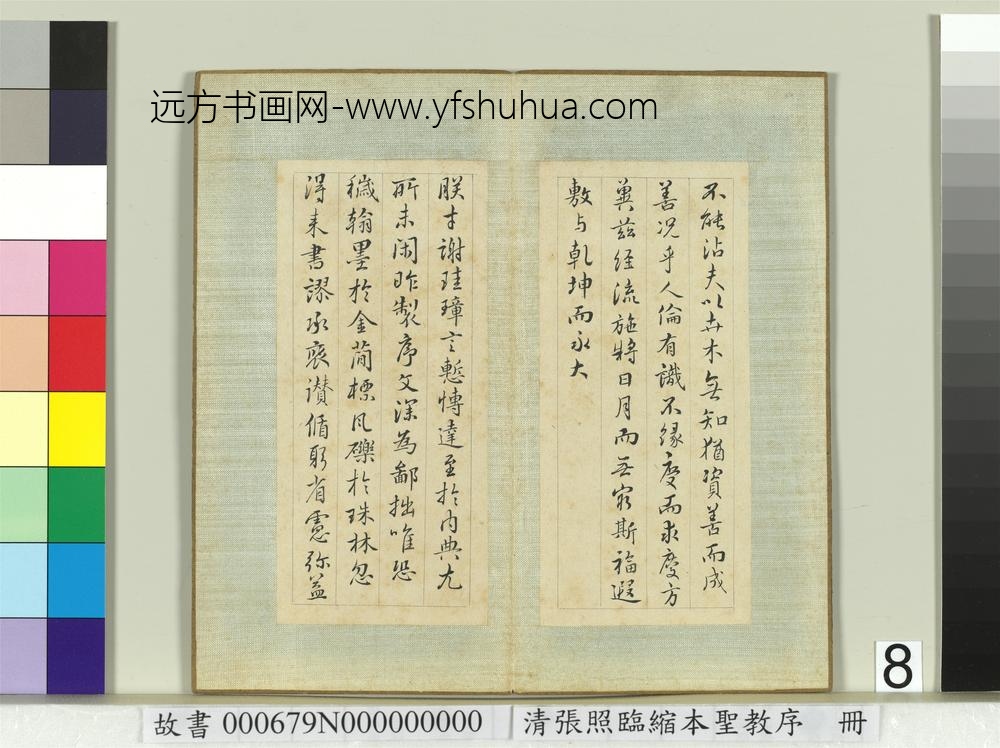 远方书画网-www.yfshuhua.com
不能沾夫以卉木無知猶資善而成
善況乎人倫有識不緣慶而求慶方
冀茲經流施將日月而無窮斯福遐
敷与乾坤而永大
朕才謝珪璋言慙博達至於內典尤
所未閑昨製序文深為鄙拙唯恐
穢翰墨於金簡標瓦礫於珠林忽
得来書謬承褒讃循躬省慮弥益
8
故書 000679N000000000 清張照臨縮本聖教序 冊